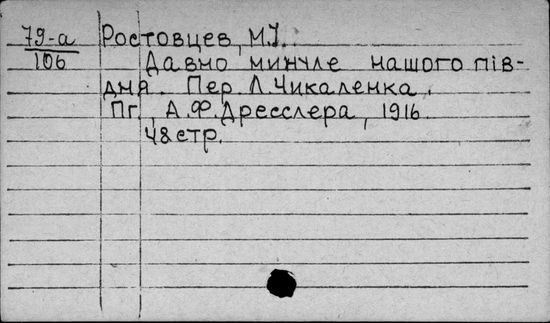 79-а Ростовцев, М.І.
106 Давно минуле нашого пів-
дня. Пер. Л. Чикаленка.
Пг., А.Ф. Дресслера, 1916.
48 стр.